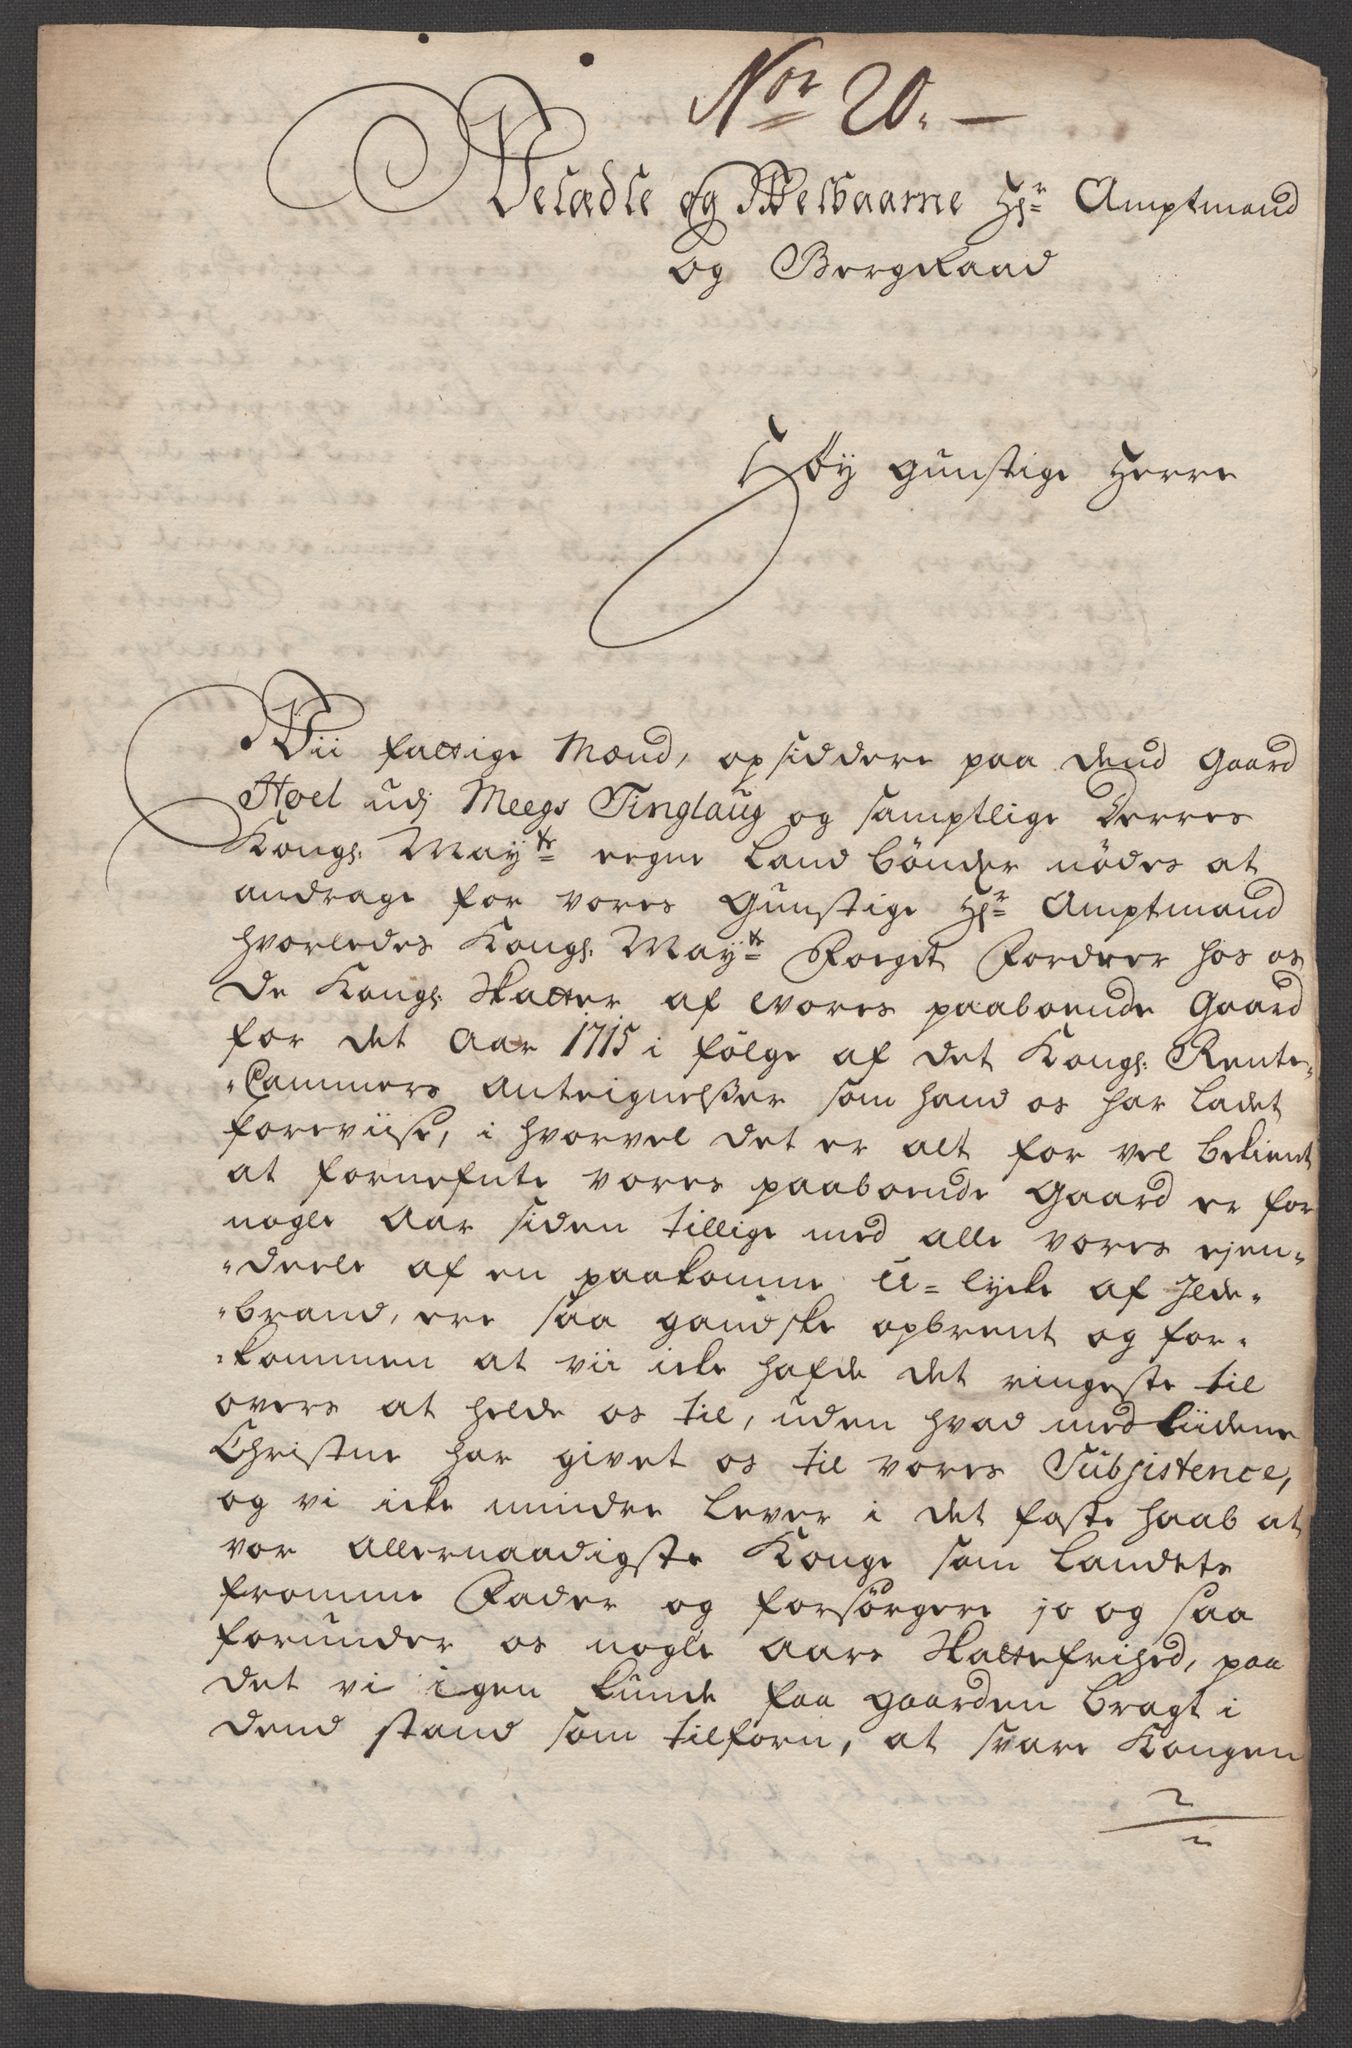 Nor 20.
Velædle og Welbaarne Hr Amptmand
og BergRaad
Høy gunstige Herre
Wii fattige Mænd, opsiddere paa dend Gaard
Hoel udj Meegs Tinglaug og samptlige Derres
Kongl: Maytz eegne Land bönder nödes at
andrage for vores Gunstige Hr Amptmand
hvorledes Kongl: Maytz Foegd Fordrer hos os
De Kongl: Skatter af vores paaboende Gaard
for det Aar 1715 i fölge af det Kongl: Rente-
-Cammers Anteignelsßer som hand os har ladet
foreviise, i hvorvel det er alt for vel bekient
at fornefnte vores paaboende Gaard er for
nogle Aar siden tillige med alle vores ejen-
-deele af en paakomme U-lycke af Jlde-
-brand, ere saa gandske opbrent og for-
-kommen at vii icke hafde det ringeste til
overs at helde os til, uden hvad medliidene
Christne har givet os til vores Subsistence,
og vi icke mindre lever i det faste haab at
vor allernaadigste Konge som Landets
fromme Fader og forsörgere jo og saa
forunder os nogle Aars Skattefrihed, paa
det vi igen kunde faa gaarden bragt i
dend stand som tilforn, at svare Kongen